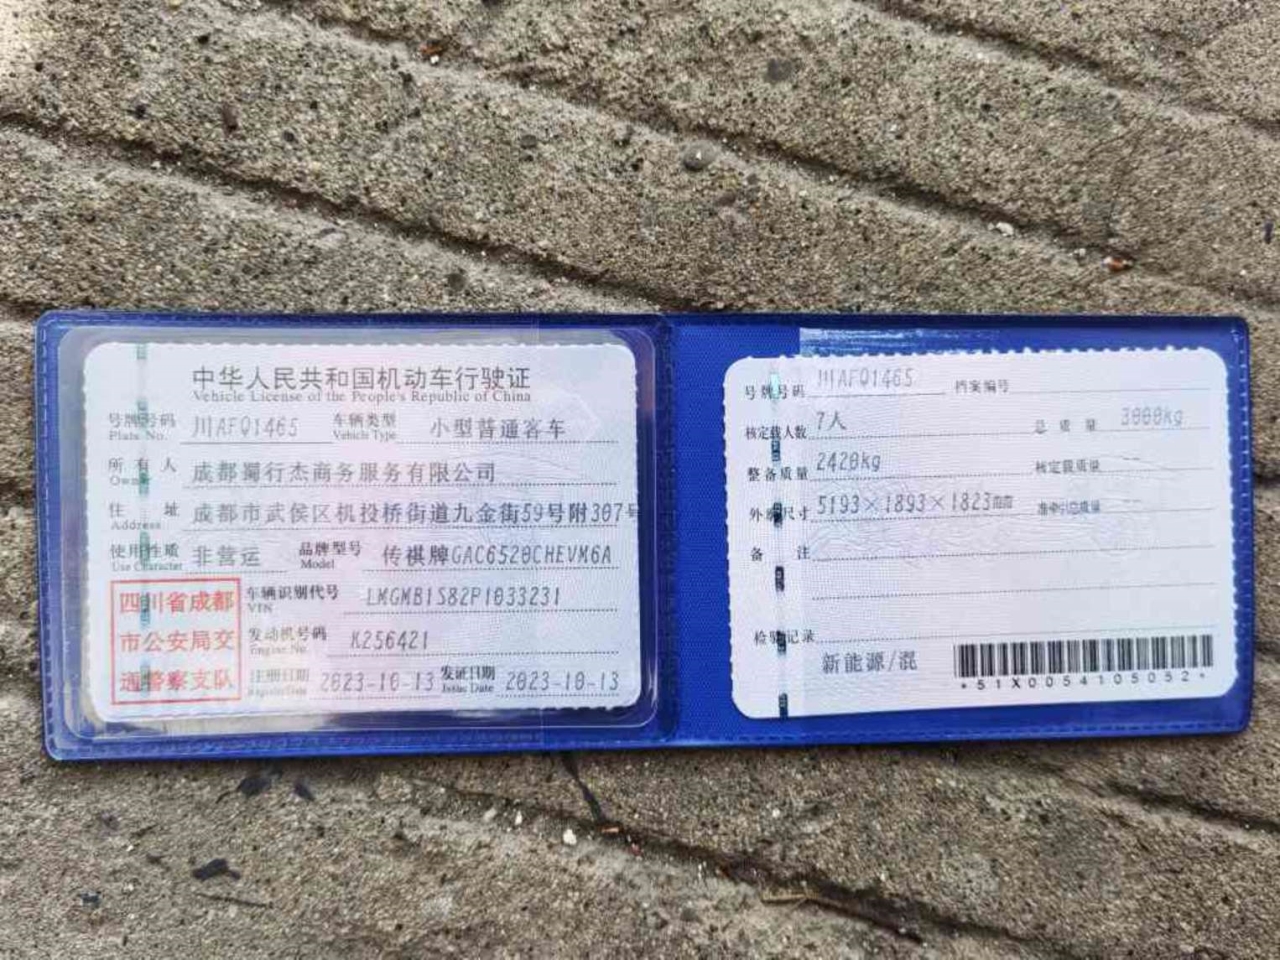 中华人民共和国机动车行驶证
Vehicle License of the People's Republic of China
号牌号码 川AFQ1465 车辆类型 小型普通客车
Plate No. Vehicle Type
所有人 成都蜀行杰商务服务有限公司
Owner
住址 成都市武侯区机投桥街道九金街59号附307号
Address
使用性质 非营运 品牌型号 传祺牌GAC6520CHEVM6A
Use Character Model
四川省成都
市公安局交
通警察支队
车辆识别代号 LMGMB1S82P1033231
VIN
发动机号码 K256421
Engine No.
注册日期 2023-10-13 发证日期 2023-10-13
Register Date Issue Date
号牌号码 川AFQ1465 档案编号
核定载人数 7人 总质量 3000kg
整备质量 2420kg 核定载质量 --
外廓尺寸 5193×1893×1823mm 准牵引总质量 --
备注
检验记录
新能源/混
*51X0054105052*